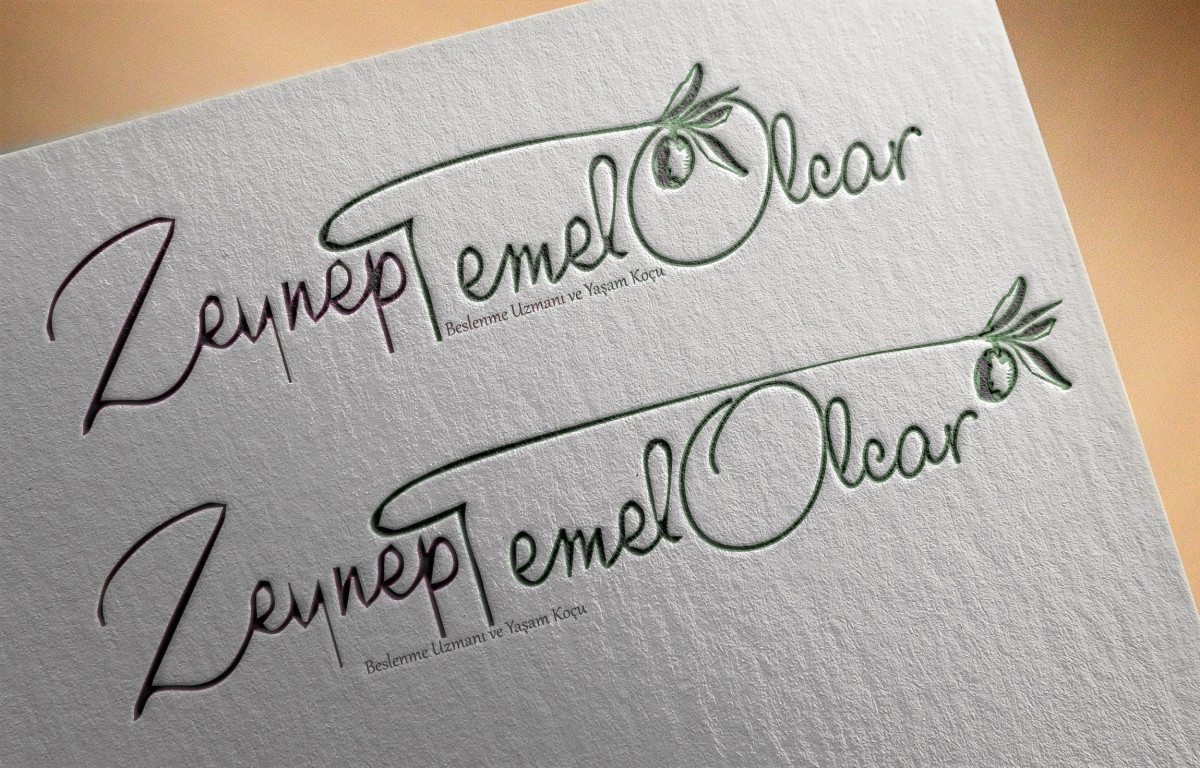 Zeynep Temel Olcar
Beslenme Uzmanı ve Yaşam Koçu
Zeynep Temel Olcar
Beslenme Uzmanı ve Yaşam Koçu